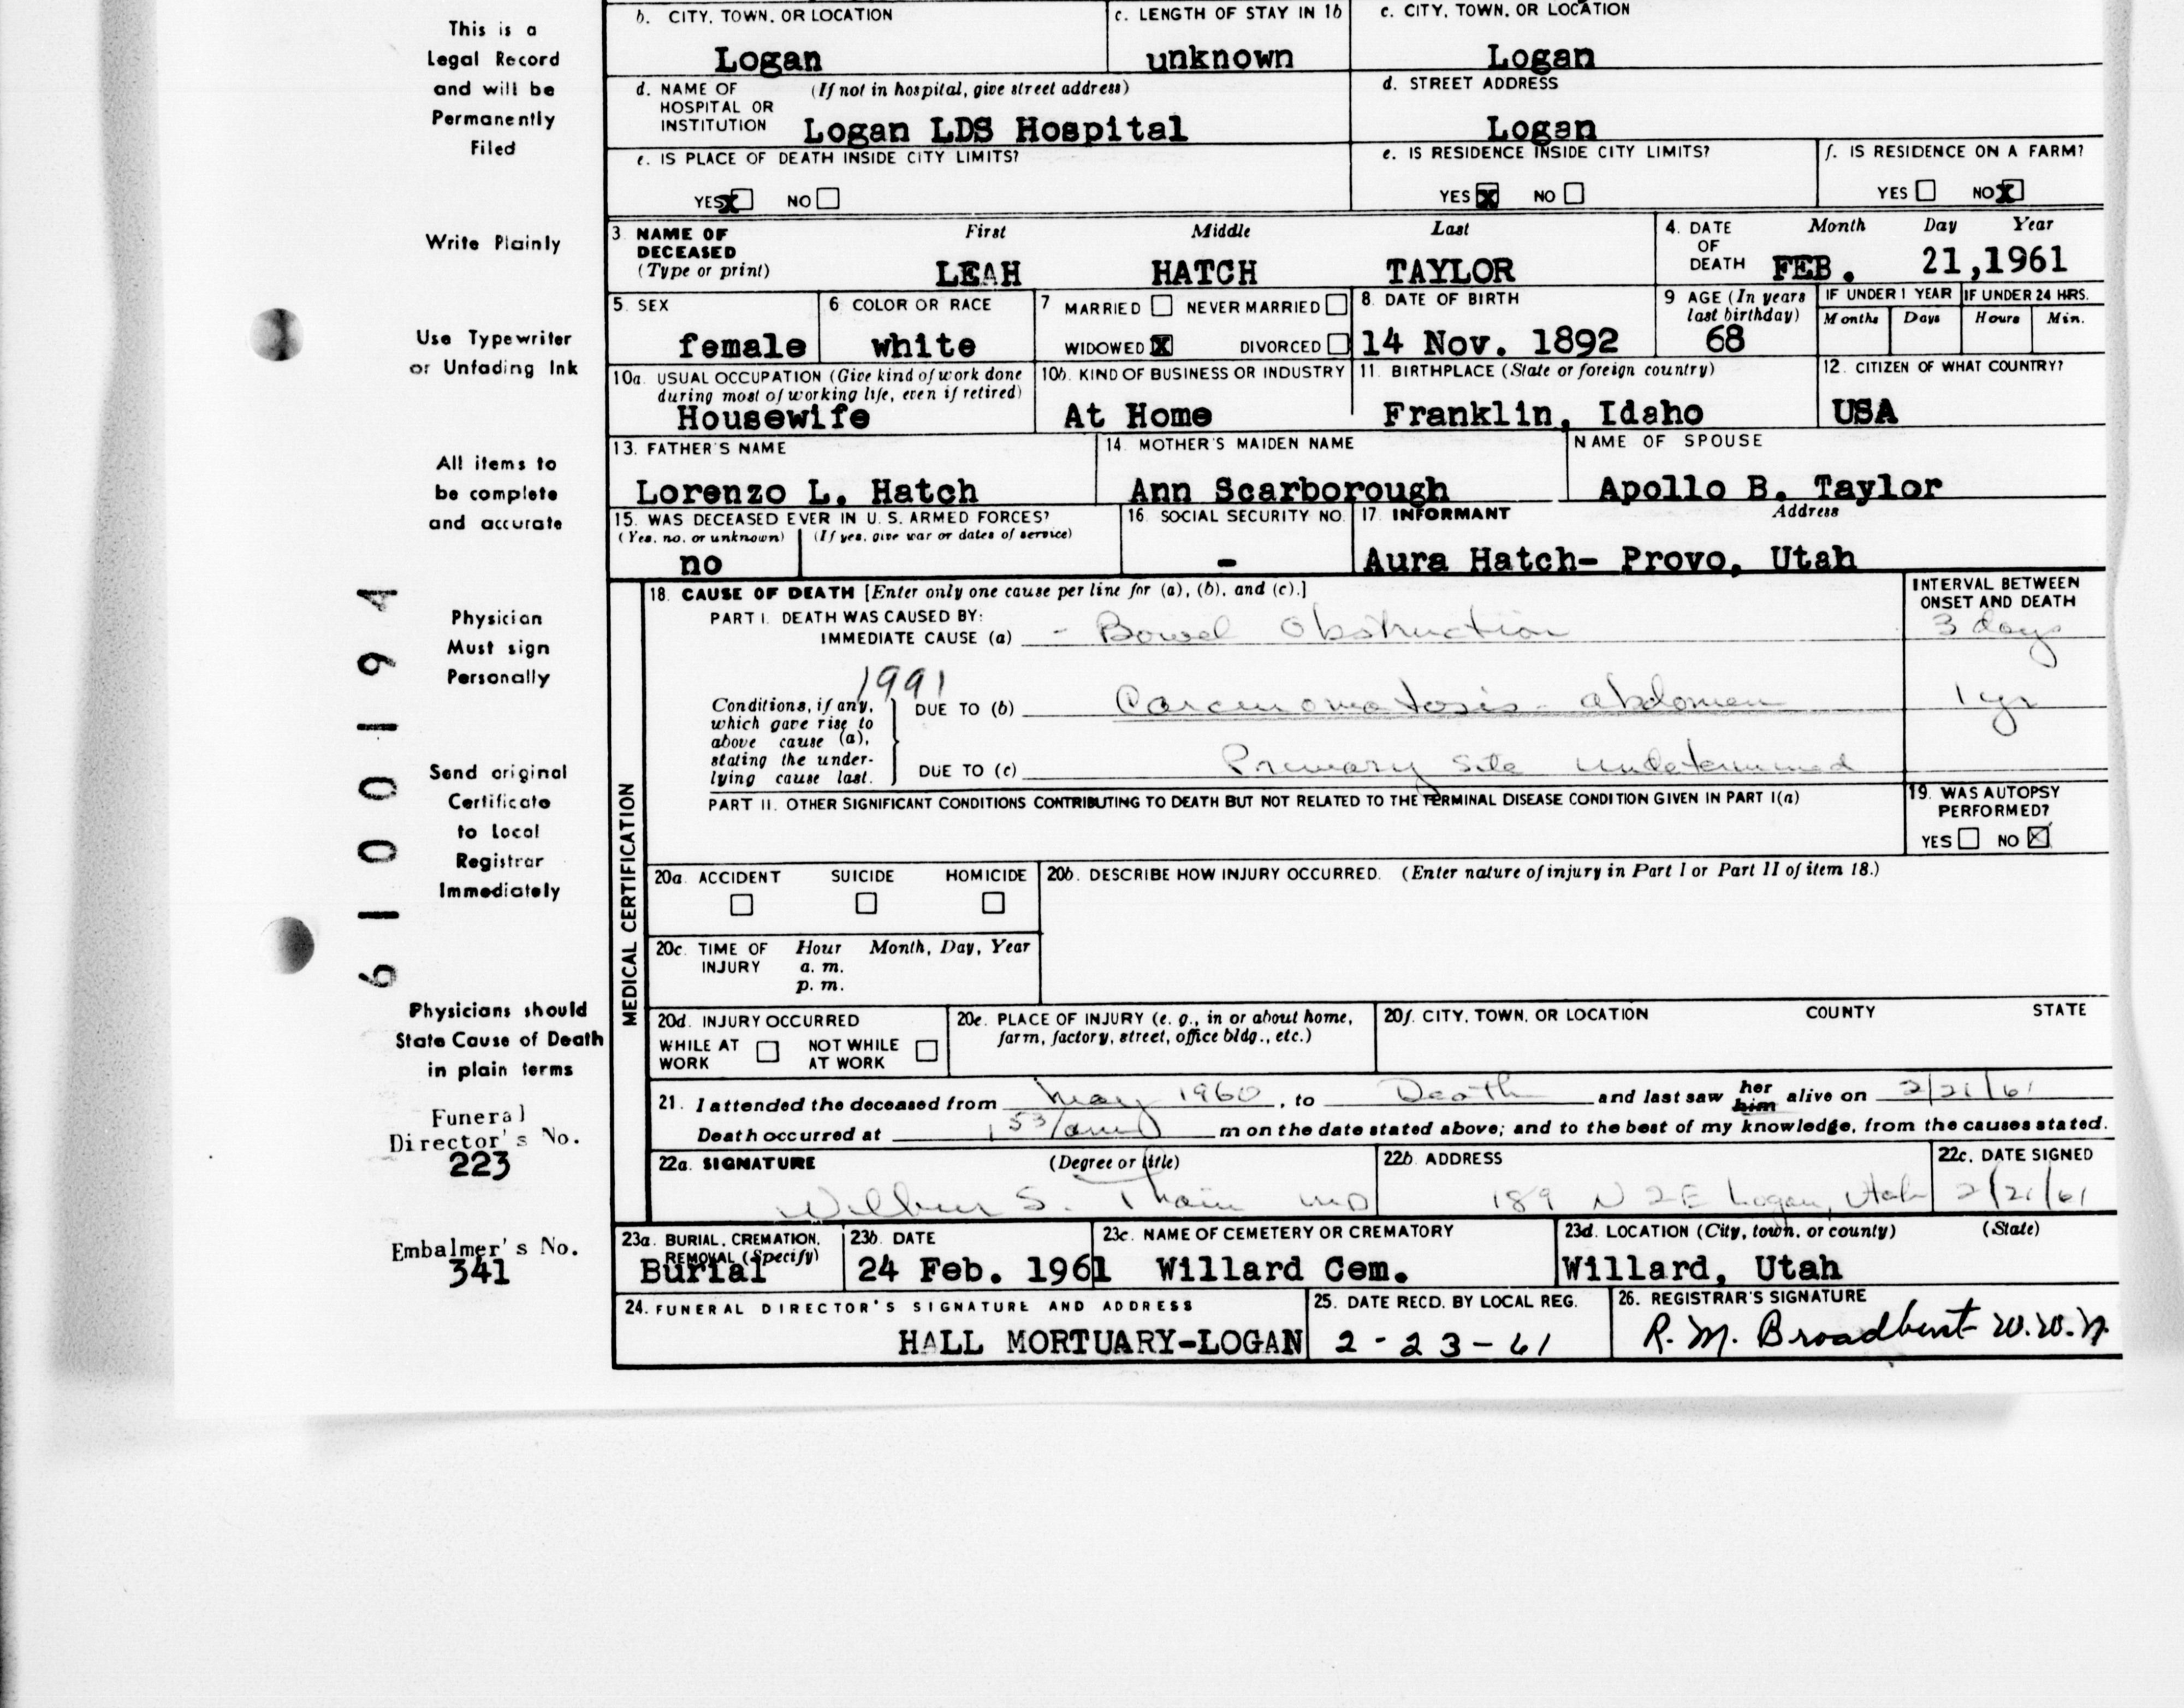 This is a
Legal Record
and will be
Permanently
Filed
Write Plainly
Use Typewriter
or Unfading Ink
All items to
be complete
and accurate
Physician
Must sign
Personally
Send original
Certificate
to Local
Registrar
Immediately
Physicians should
State Cause of Death
in plain terms
Funeral
Director's No.
223
Embalmer's No.
341
6100194
b. CITY, TOWN, OR LOCATION
Logan
c. LENGTH OF STAY IN 1b
unknown
c. CITY, TOWN, OR LOCATION
Logan
d. NAME OF (If not in hospital, give street address)
HOSPITAL OR
INSTITUTION Logan LDS Hospital
d. STREET ADDRESS
Logan
e. IS PLACE OF DEATH INSIDE CITY LIMITS?
YES X NO
e. IS RESIDENCE INSIDE CITY LIMITS?
YES X NO
f. IS RESIDENCE ON A FARM?
YES NO X
3. NAME OF DECEASED (Type or print)
First Middle Last
LEAH HATCH TAYLOR
4. DATE OF DEATH
Month Day Year
FEB. 21,1961
5. SEX
female
6 COLOR OR RACE
white
7 MARRIED NEVER MARRIED
WIDOWED X DIVORCED
8. DATE OF BIRTH
14 Nov. 1892
9 AGE (In years
last birthday)
68
IF UNDER 1 YEAR
Months Days
IF UNDER 24 HRS.
Hours Min.
10a. USUAL OCCUPATION (Give kind of work done
during most of working life, even if retired)
Housewife
10b. KIND OF BUSINESS OR INDUSTRY
At Home
11. BIRTHPLACE (State or foreign country)
Franklin, Idaho
12. CITIZEN OF WHAT COUNTRY?
USA
13. FATHER'S NAME
Lorenzo L. Hatch
14. MOTHER'S MAIDEN NAME
Ann Scarborough
NAME OF SPOUSE
Apollo B. Taylor
15. WAS DECEASED EVER IN U.S. ARMED FORCES?
(Yes, no, or unknown) (If yes, give war or dates of service)
no
16. SOCIAL SECURITY NO.
-
17. INFORMANT Address
Aura Hatch- Provo, Utah
MEDICAL CERTIFICATION
18. CAUSE OF DEATH [Enter only one cause per line for (a), (b), and (c).]
INTERVAL BETWEEN
ONSET AND DEATH
PART I. DEATH WAS CAUSED BY:
IMMEDIATE CAUSE (a) - Bowel Obstruction 3 days
1991
Conditions, if any,
which gave rise to
above cause (a),
stating the under-
lying cause last.
DUE TO (b) Carcinomatosis - abdomen 1 yr
DUE TO (c) Primary site undetermined
PART II. OTHER SIGNIFICANT CONDITIONS CONTRIBUTING TO DEATH BUT NOT RELATED TO THE TERMINAL DISEASE CONDITION GIVEN IN PART I(a)
19. WAS AUTOPSY
PERFORMED?
YES NO X
20a. ACCIDENT SUICIDE HOMICIDE
20b. DESCRIBE HOW INJURY OCCURRED. (Enter nature of injury in Part I or Part II of item 18.)
20c. TIME OF INJURY
Hour Month, Day, Year
a. m.
p. m.
20d. INJURY OCCURRED
WHILE AT WORK NOT WHILE AT WORK
20e. PLACE OF INJURY (e. g., in or about home,
farm, factory, street, office bldg., etc.)
20f. CITY, TOWN, OR LOCATION COUNTY STATE
21. I attended the deceased from May 1960, to Death and last saw her him alive on 2/21/61
Death occurred at 1 53/am m on the date stated above; and to the best of my knowledge, from the causes stated.
22a. SIGNATURE (Degree or title)
Wilbur S. Thain MD
22b. ADDRESS
189 N 2E Logan, Utah
22c. DATE SIGNED
2/21/61
23a. BURIAL, CREMATION,
REMOVAL (Specify)
Burial
23b. DATE
24 Feb. 1961
23c. NAME OF CEMETERY OR CREMATORY
Willard Cem.
23d. LOCATION (City, town, or county) (State)
Willard, Utah
24. FUNERAL DIRECTOR'S SIGNATURE AND ADDRESS
HALL MORTUARY-LOGAN
25. DATE RECD. BY LOCAL REG.
2-23-61
26. REGISTRAR'S SIGNATURE
R. M. Broadbent w.w.n.